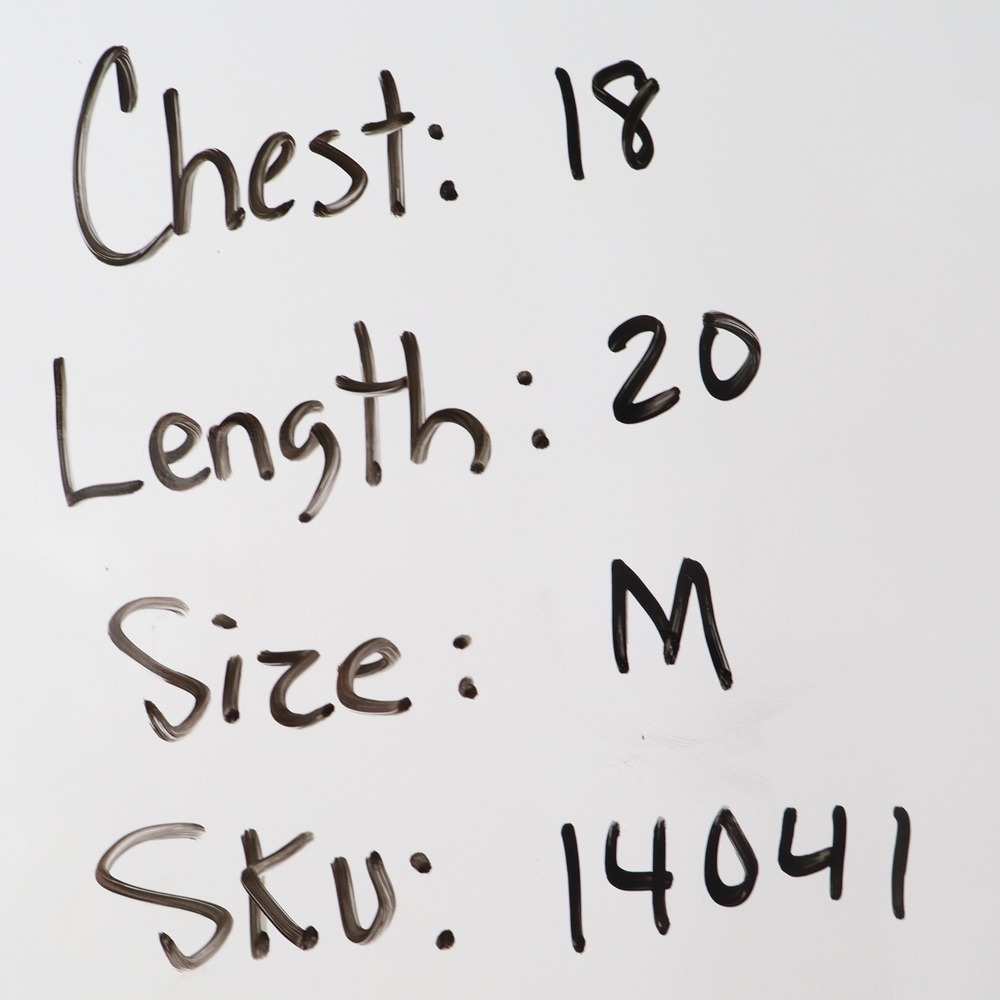 Chest: 18
Length: 20
Size: M
SKU: 14041